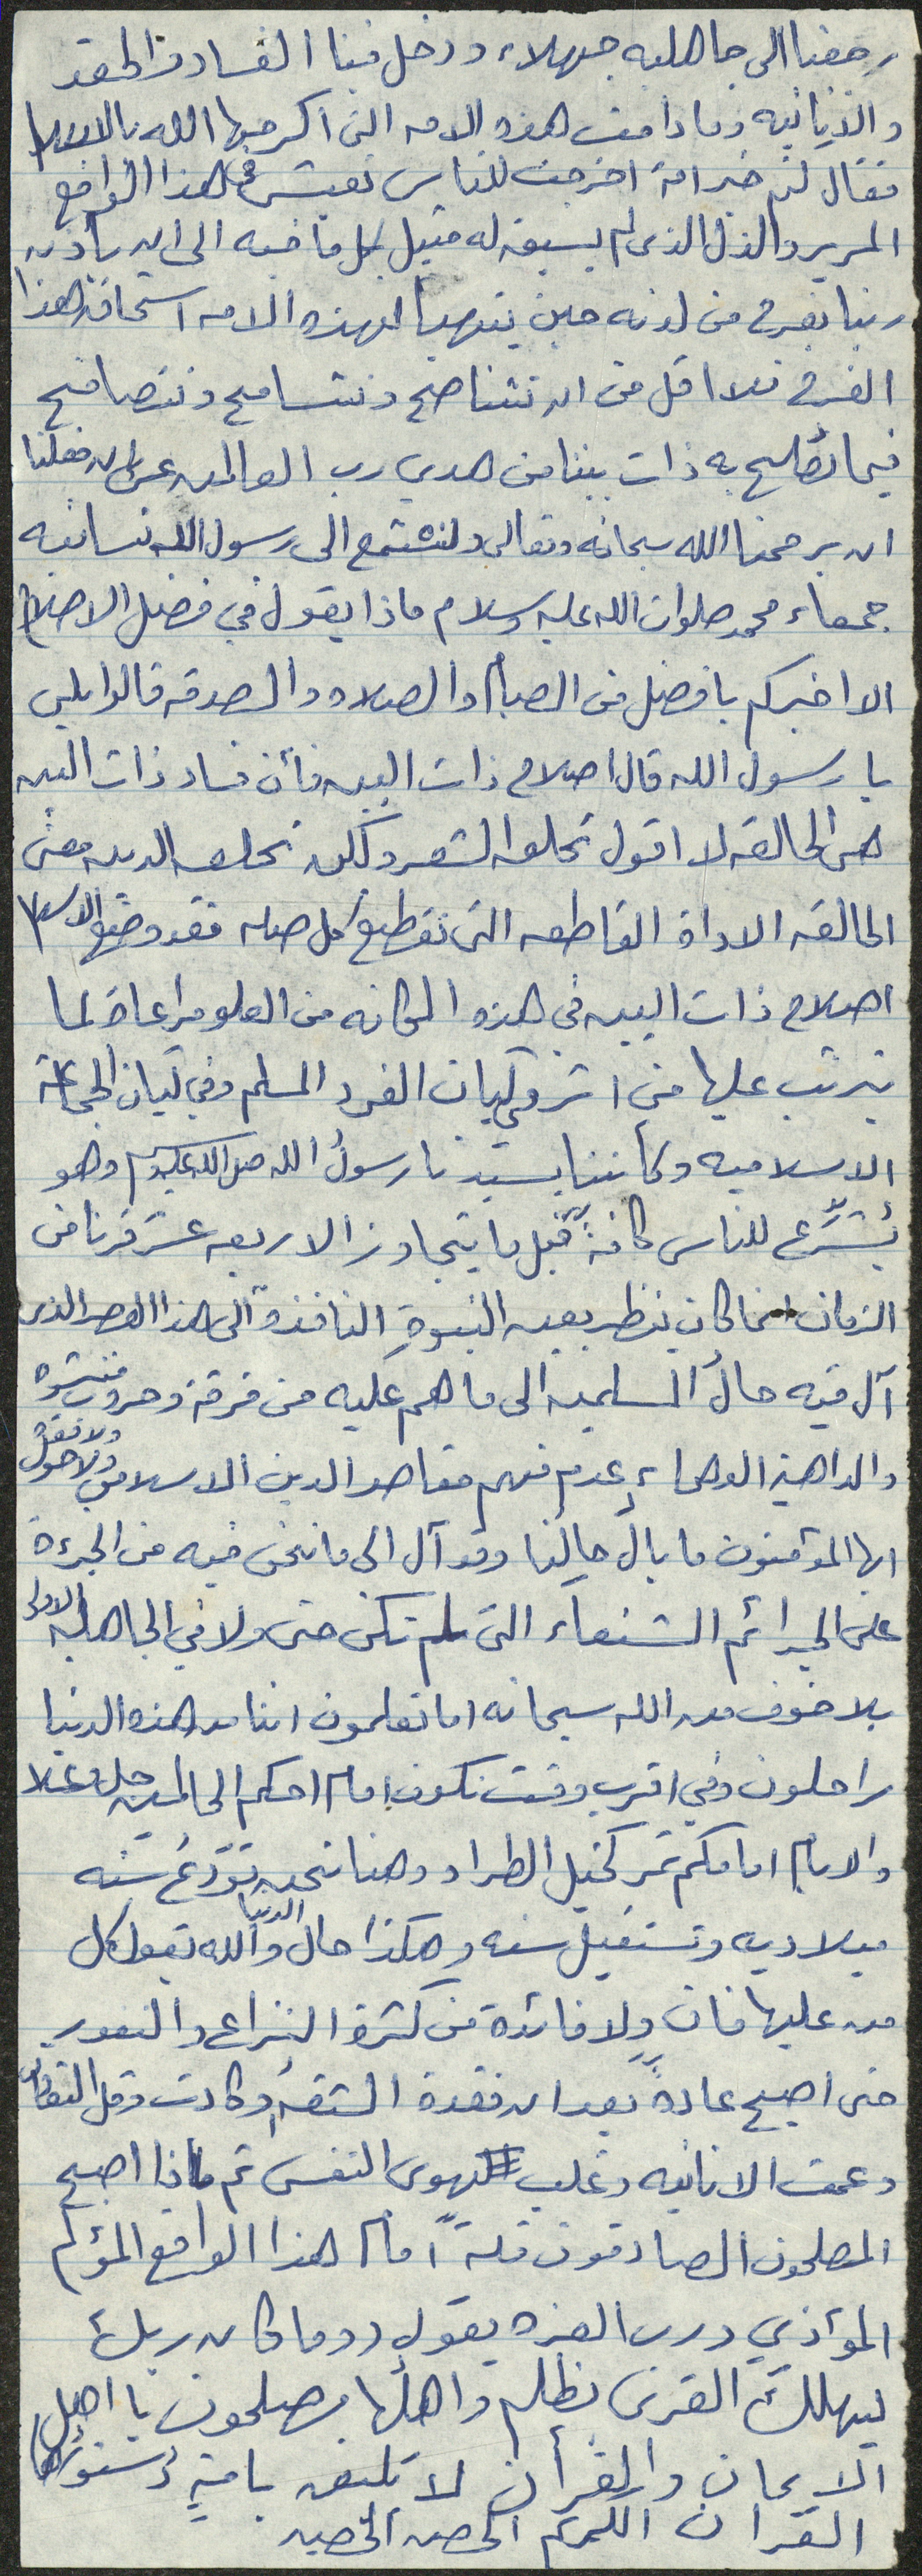 رجعنا الى جاهليه جهلاء ودخل فينا الفساد والحقد
والانانيه وما دامت هذه الامه التي اكرمها الله بالاسلام
فقال كنتم خير امة اخرجت للناس تعيش في هذا الواقع
المرير والذل الذي لم يسبق له مثيل بكل ما فيه الى ان يأذن
ربنا بفرج من لدنه حين يتهيأ لهذه الامه استحقاق هذا
الفرج فلا اقل من ان نتناصح ونتسامح ونتصافح
فيما نصلح به ذات بيننا من هدي رب العالمين عسى ان فعلنا
ان يرحمنا الله سبحانه وتعالى ولنستمع الى رسول الانسانيه
جمعاء محمد صلوات الله عليه وسلام ماذا يقول في فضل الاصلاح
الا اخبركم بافضل من الصيام والصلاه والصدقه قالوا بلى
يا رسول الله قال اصلاح ذات البين فأن فساد ذات البين
هي الحالقه لا اقول تحلق الشعر ولكن تحلق الدين معنى
الحالقه الاداة القاطعه التي تقطع كل صله فقد وضع الاسلام
اصلاح ذات البين في هذه المكانه من العلو مراعاة لما
يترتب عليها من اثر في كيان الفرد المسلم وفي كيان الجماعة
الاسلاميه وكأننا بسيدنا رسول الله صلى الله عليه وسلم وهو
يُشرّع للناس كافةً قبل ما يتجاوز الاربعه عشر قرنا من
الزمان انما كان ينظر بعين النبوةِ النافذة الى هذا العصر الذي
آل فيه حال المسلمين الى ما هم عليه من فرقة وحروب منتشره
والداهية الدهماء عدم فهم مقاصد الدين الاسلامي ولا حول ولا قوة
ايها المؤمنون ما بال حالِنا وقد آل الى ما نحن فيه من الجرءة
على الجرائم الشنعاء التي لم تكن حتى ولا في الجاهلية الاولى
بلا خوف من الله سبحانه اما تعلمون اننا من هذه الدنيا
راحلون وفي اقرب وقت نكون امام احكم الحاكمين جل وعلا
والايام امامكم تمر كخيل الطراد وهنا نحن نودّع سنه
ميلاديه ونستقبل سنه وهكذا حال الدنيا والله يقول كل
من عليها فان ولا فائدة من كثرة النزاع والنفور
حتى اصبح عادةً بعد ان فقدة الثقه وكادت وقل التعاون
وعمت الانانيه وغلب هوى النفس ثم ماذا اصبح
المصلحون الصادقون قلةً امام هذا الواقع المؤلم
المؤذي ورب العزه يقول ((وما كان ربك
ليهلك القرى بظلم واهلها مصلحون يا اهل
الايمان والقرأن لا تليق بامةٍ دستورها
القران الكريم الحصن الحصين